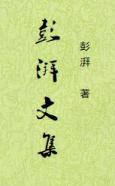 彭湃文集
彭湃 著